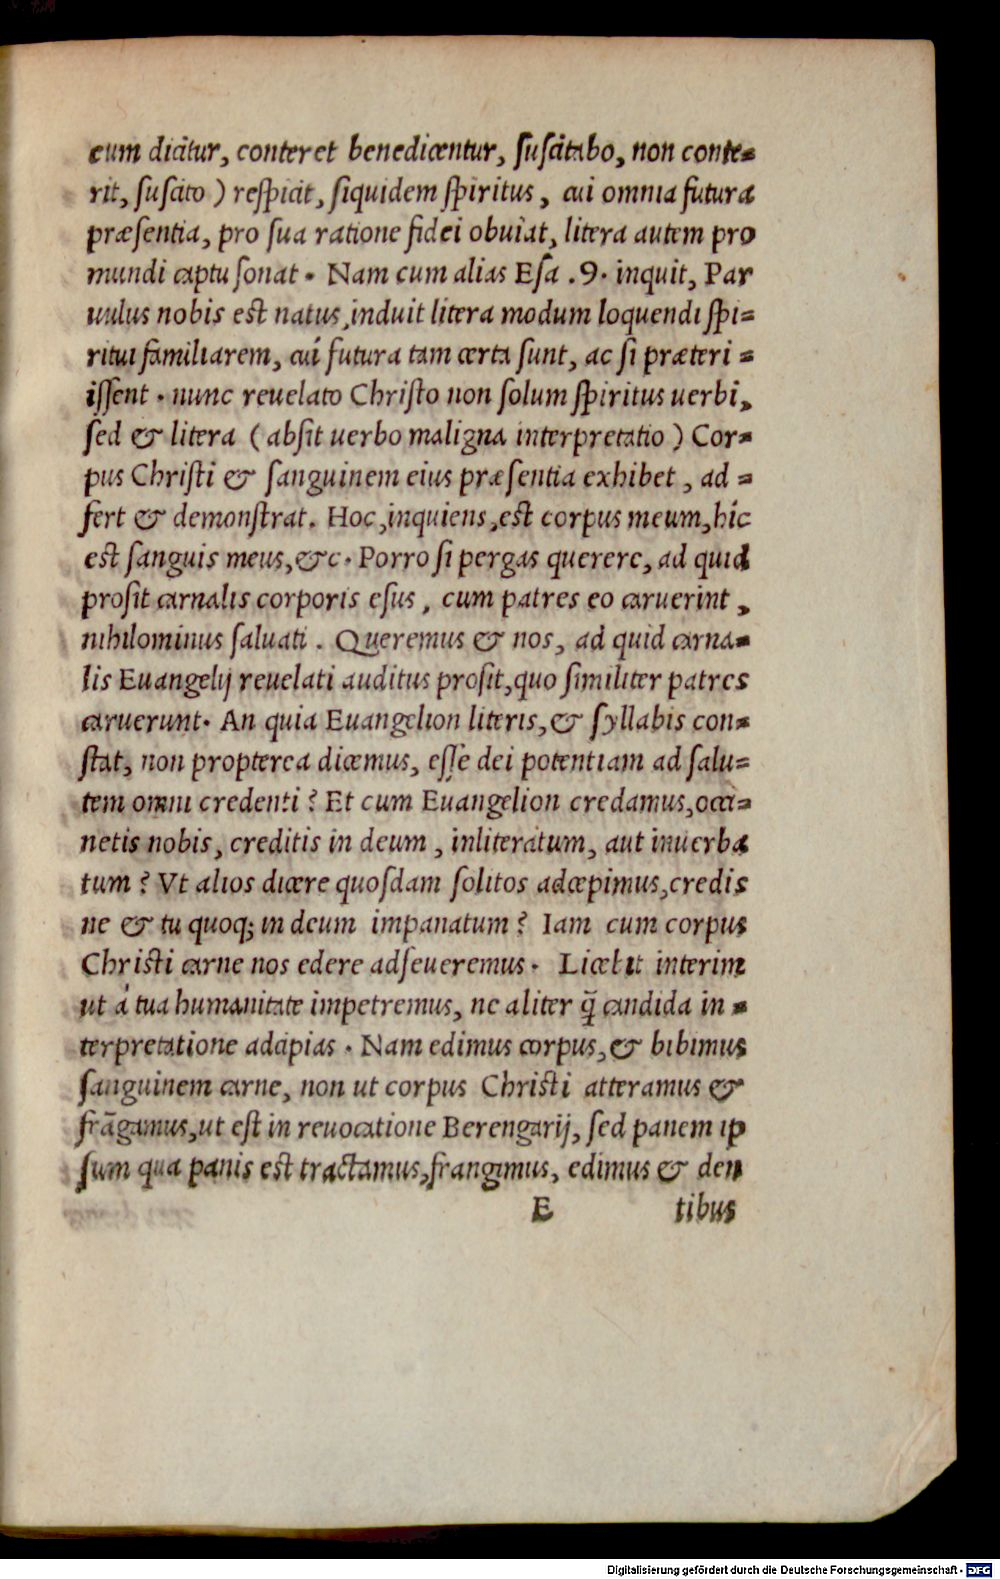 cum dicitur, conteret benedicentur, ſuſcitabo, non conte=
rit, ſuſcito ) reſpicit, ſiquidem ſpiritus, cui omnia futura
præſentia, pro ſua ratione fidei obuiat, litera autem pro
mundi captu ſonat. Nam cum alias Eſa .9. inquit, Par
uulus nobis est natus, induit litera modum loquendi ſpi=
ritui familiarem, cui futura tam certa ſunt, ac ſi præteri=
iſſent. nunc reuelato Chriſto non ſolum ſpiritus uerbi,
ſed & litera (abſit uerbo maligna interpretatio) Cor=
pus Chriſti & ſanguinem eius præſentia exhibet, ad=
fert & demonſtrat. Hoc, inquiens, est corpus meum, hic
est ſanguis meus, &c. Porro ſi pergas querere, ad quid
proſit carnalis corporis eſus, cum patres eo caruerint,
nihilominus ſaluati. Queremus & nos, ad quid carna=
lis Euangelij reuelati auditus proſit, quo ſimiliter patres
caruerunt. An quia Euangelion literis, & ſyllabis con=
ſtat, non propterea dicemus, eſſe dei potentiam ad ſalu=
tem omni credenti? Et cum Euangelion credamus, occi=
netis nobis, creditis in deum, inliteratum, aut inuerba
tum? Vt alios dicere quoſdam ſolitos adcepimus, credis
ne & tu quoq; in deum impanatum? Iam cum corpus
Chriſti carne nos edere adſeueremus. Licebit interim
ut á tua humanitate impetremus, ne aliter q̃ candida in=
terpretatione adcipias. Nam edimus corpus, & bibimus
ſanguinem carne, non ut corpus Chriſti atteramus &
frãgamus, ut est in reuocatione Berengarij, ſed panem ip
ſum qua panis est tractamus, frangimus, edimus & den
E tibus
Digitalisierung gefördert durch die Deutsche Forschungsgemeinschaft - DFG